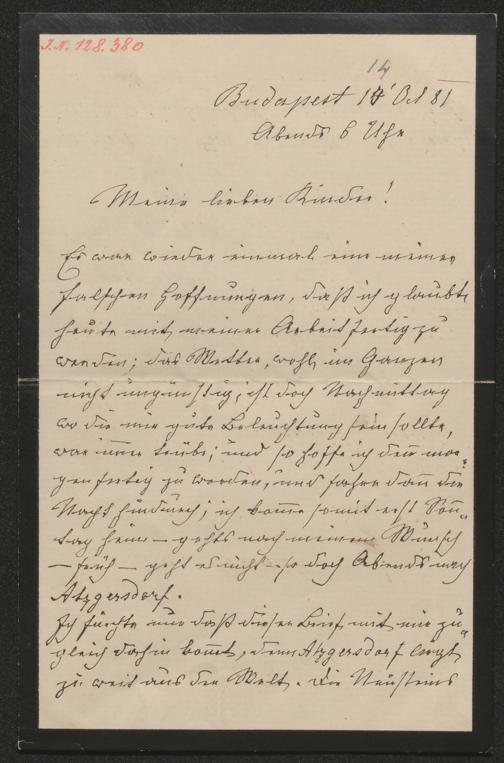 I.N. 128.380
14
Budapest 14 Oct 81
Abends 6 Uhr
Meine lieben Kinder!
Es war wieder einmal eine meiner
falschen Hoffnungen, daß ich glaubte
heute mit meiner Arbeit fertig zu
werden; das Wetter, wohl im Ganzen
nicht ungünstig, ist doch Nachmittag
wo die mir gute Beleuchtung sein sollte,
war immer trübe; und so hoffe ich denn mor-
gen fertig zu werden, und fahre dann die
Nacht hindurch; ich komme somit erst Sonn-
tag heim – gehts nach meinem Wunsch
– früh – geht es nicht – so doch Abends nach
Atzgersdorf.
Ich fürchte nur daß dieser Brief mit mir zu-
gleich dahin kommt, denn Atzgersdorf liegt
zu weit aus der Welt. Die